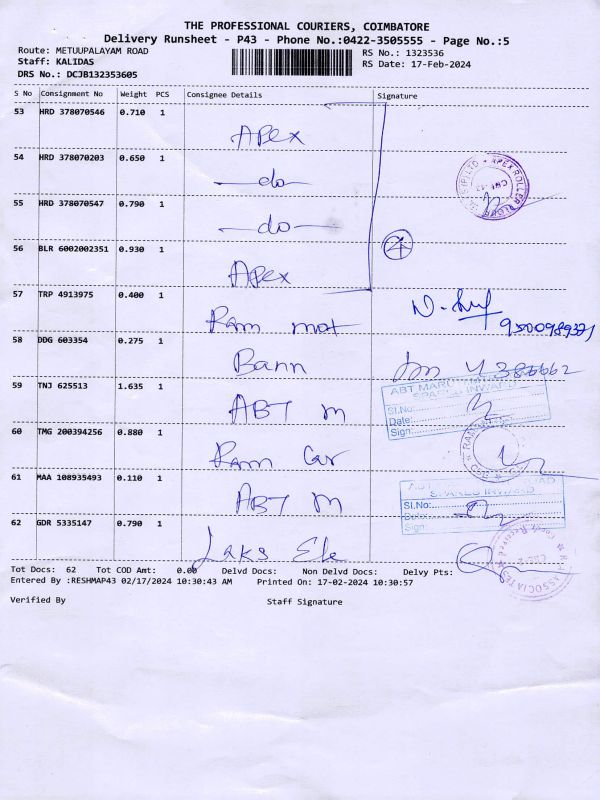 THE PROFESSIONAL COURIERS, COIMBATORE
Delivery Runsheet - P43 - Phone No.:0422-3505555 - Page No.:5
Route: METUUPALAYAM ROAD
Staff: KALIDAS
DRS No.: DCJB132353605
RS No.: 1323536
RS Date: 17-Feb-2024
S No Consignment No Weight PCS Consignee Details Signature
53 HRD 378070546 0.710 1 Apex
54 HRD 378070203 0.650 1 —do—
55 HRD 378070547 0.790 1 —do—
56 BLR 6002002351 0.930 1 Apex
4
57 TRP 4913975 0.400 1 Ram mot
58 DDG 603354 0.275 1 Bann
59 TNJ 625513 1.635 1 ABT m
60 TMG 200394256 0.880 1 Ram Car
61 MAA 108935493 0.110 1 ABT m
62 GDR 5335147 0.790 1 Laks Ele
APEX ROLLER
ABT MARU
SPARES INWARD
Sl.No:
Date:
Sign:
SPARES INWARD
Sl.No:
ASSOCIATES
Tot Docs: 62 Tot COD Amt: 0.00 Delvd Docs: Non Delvd Docs: Delvy Pts:
Entered By :RESHMAP43 02/17/2024 10:30:43 AM Printed On: 17-02-2024 10:30:57
Verified By Staff Signature